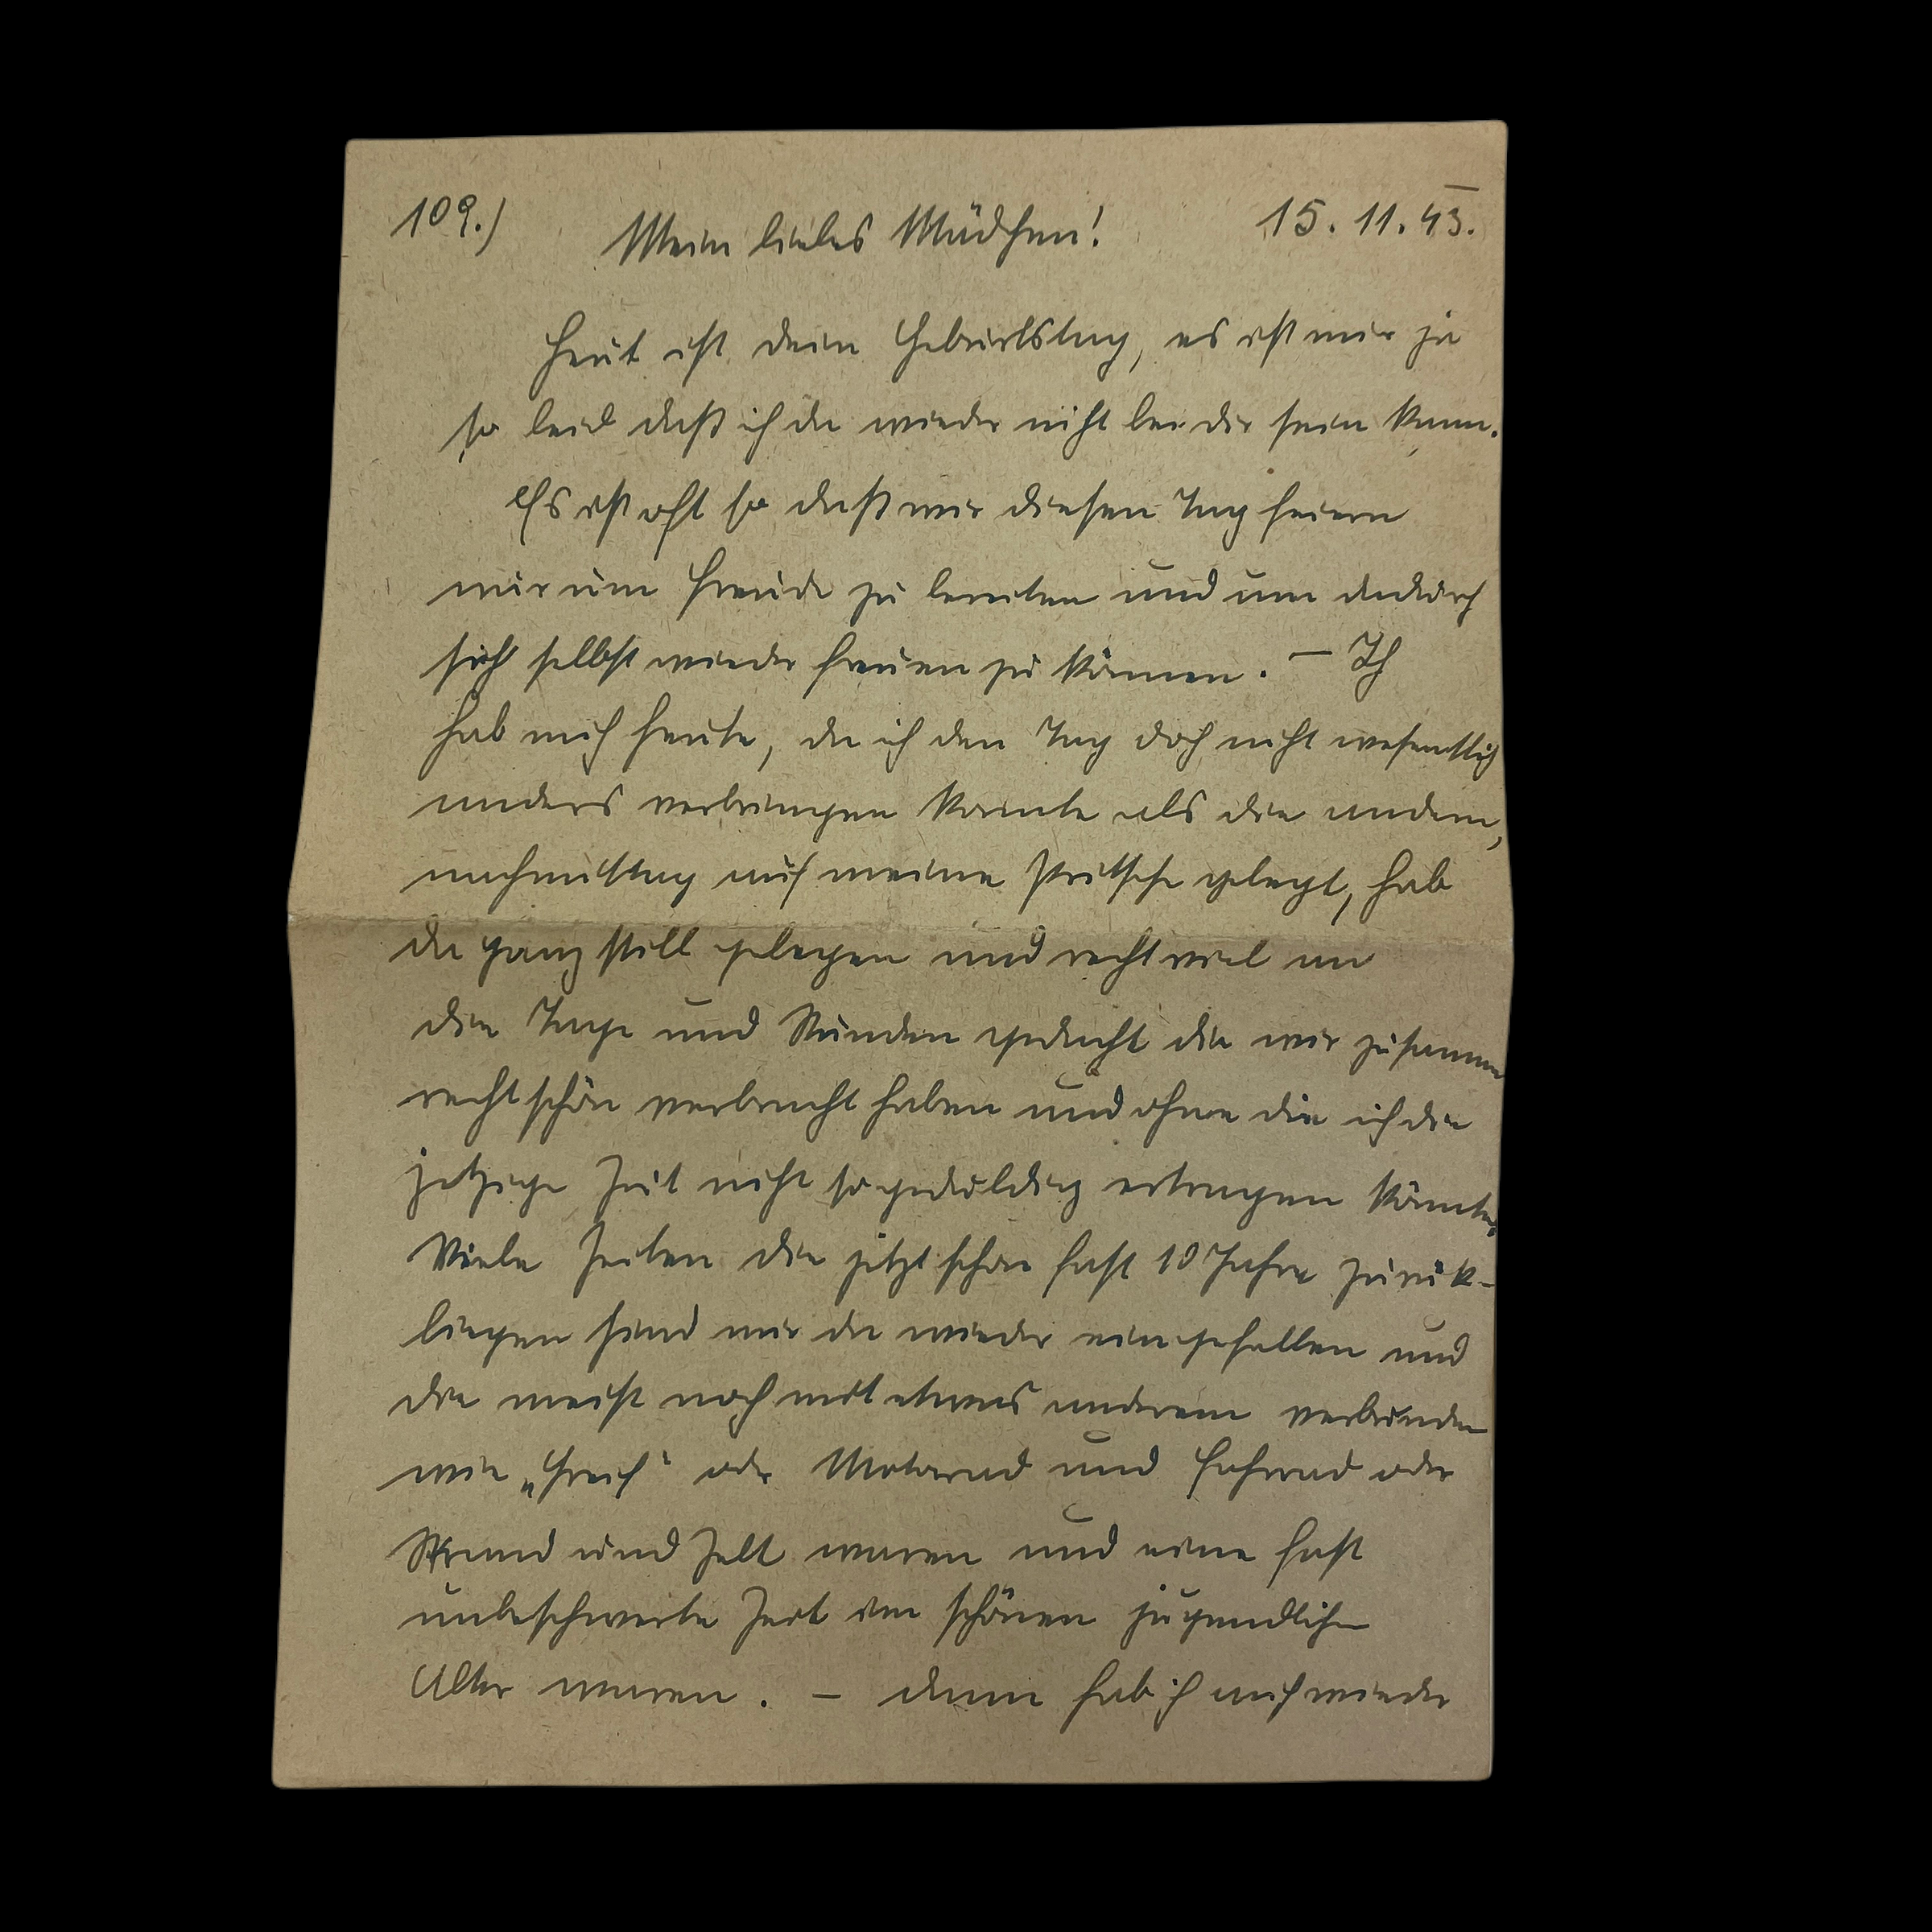 109.) Mein liebes Mädchen! 15.11.43.
Heut ist dein Geburtstag, es ist mir ja
so leid daß ich da wieder nicht bei dir sein kann.
Es ist oft so daß wir diesen Tag feiern
nur um Freude zu bereiten und um dadurch
sich selbst wieder freuen zu können. – Ich
hab mich heute, da ich den Tag doch nicht wesentlich
anders verbringen konnte als die andern,
nachmittag auf meine Pritsche gelegt, hab
da ganz still gelegen und recht viel an
die Tage und Stunden gedacht die wir zusammen
recht schön verbracht haben und ohne die ich die
jetzige Zeit nicht so geduldig ertragen könnte.
Viele Zeiten die jetzt schon fast 10 Jahre zurück-
liegen sind mir da wieder eingefallen und
die meist noch mit etwas anderem verbunden
wie „ oder Motorrad und Fahrrad oder
Strand und Zelt waren und eine fast
unbeschwerte Zeit im schönen jugendlichen
Alter waren. – dann hab ich auch wieder